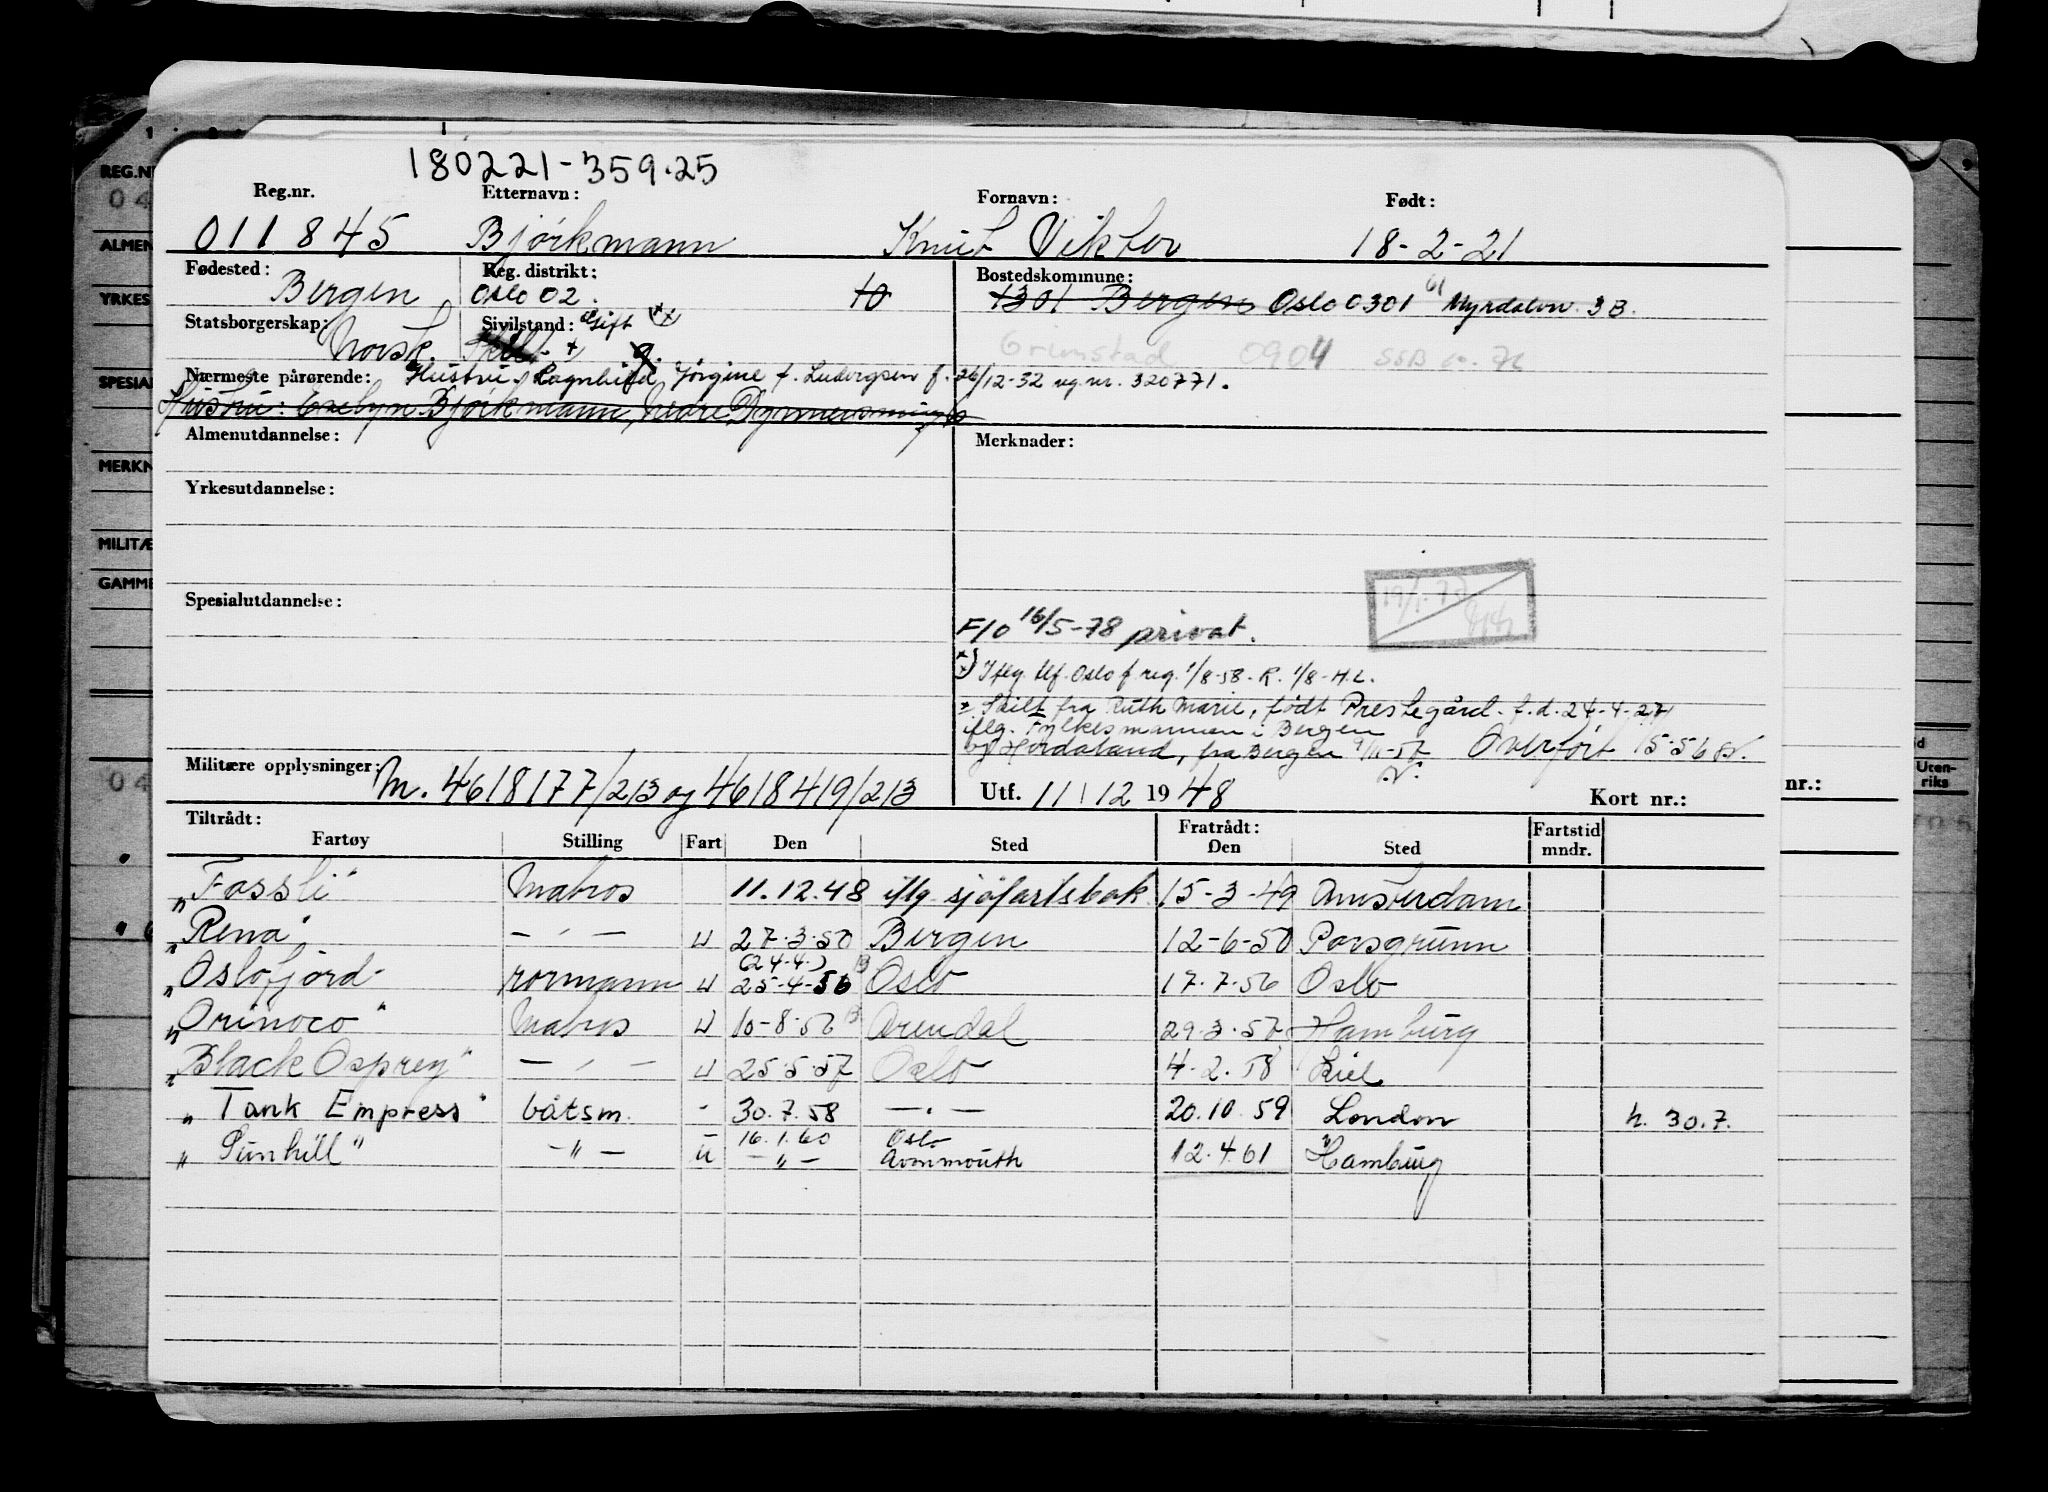 180221-359.25
Reg.nr. Etternavn: Fornavn: Født:
011845 Bjørkmann Knut Viktor 18-2-21
Fødested: Reg. distrikt: Bostedskommune:
Bergen Oslo 02. 10 1301 Bergen Oslo 0301 Myrdalvn. 3B.
Statsborgerskap: Sivilstand: Gift
Norsk. Skilt Grimstad 0904 SSB
Nærmeste pårørende: Hustru: Ragnhild Jørgine f. Ludvigsen f. 26/12-32 reg.nr. 320771.
Hustru: Evelyn Bjørkmann, Nedre
Almenutdannelse: Merknader:
Yrkesutdannelse:
Spesialutdannelse:
F/O 16/5-78 privat.
Iflg. tlf. Oslo f reg. 1/8-58. R. 1/8-H.L.
* Skilt fra Ruth Marie, født Prestegård. f.d. 24-4-27
iflg. Fylkesmannen i Bergen
og Hordaland, fra Bergen 9/11-57 Overført 15.5.56
Militære opplysninger: M. 4618177/213 og 4618419/213 Utf. 11/12 1948 Kort nr.:
Tiltrådt: Fratrådt: Fartstid
Fartøy Stilling Fart Den Sted Den Sted mndr.
"Fossli" Matros 11.12.48 iflg sjøfartsbok 15-3-49 Amsterdam
"Rena" — " — U 27.3.50 Bergen 12-6-50 Porsgrunn
(24.4.)
"Oslofjord" rormann U 25.4-56 Oslo 17.7.56 Oslo
"Orinoco" Matros U 10-8-56 Arendal 29.3.57 Hamburg
"Black Osprey" — " — U 25.5.57 Oslo 4.2.58 Kiel
"Tank Empress" båtsm. - 30.7.58 — " — 20.10.59 London h. 30.7.
16.1.60 Oslo
"Sunhill" — " — U — " — Avonmouth 12.4.61 Hamburg
REG.N
04
ALMEN
YRKES
SPESIAL
MERKN
MILITÆ
GAMME
04
nr.:
Uten-
riks